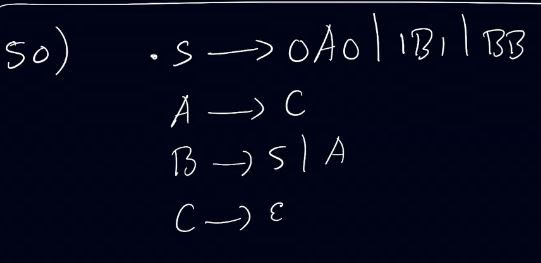 50) . S → 0A0 | 1B1 | BB
A → C
B → S | A
C → ε